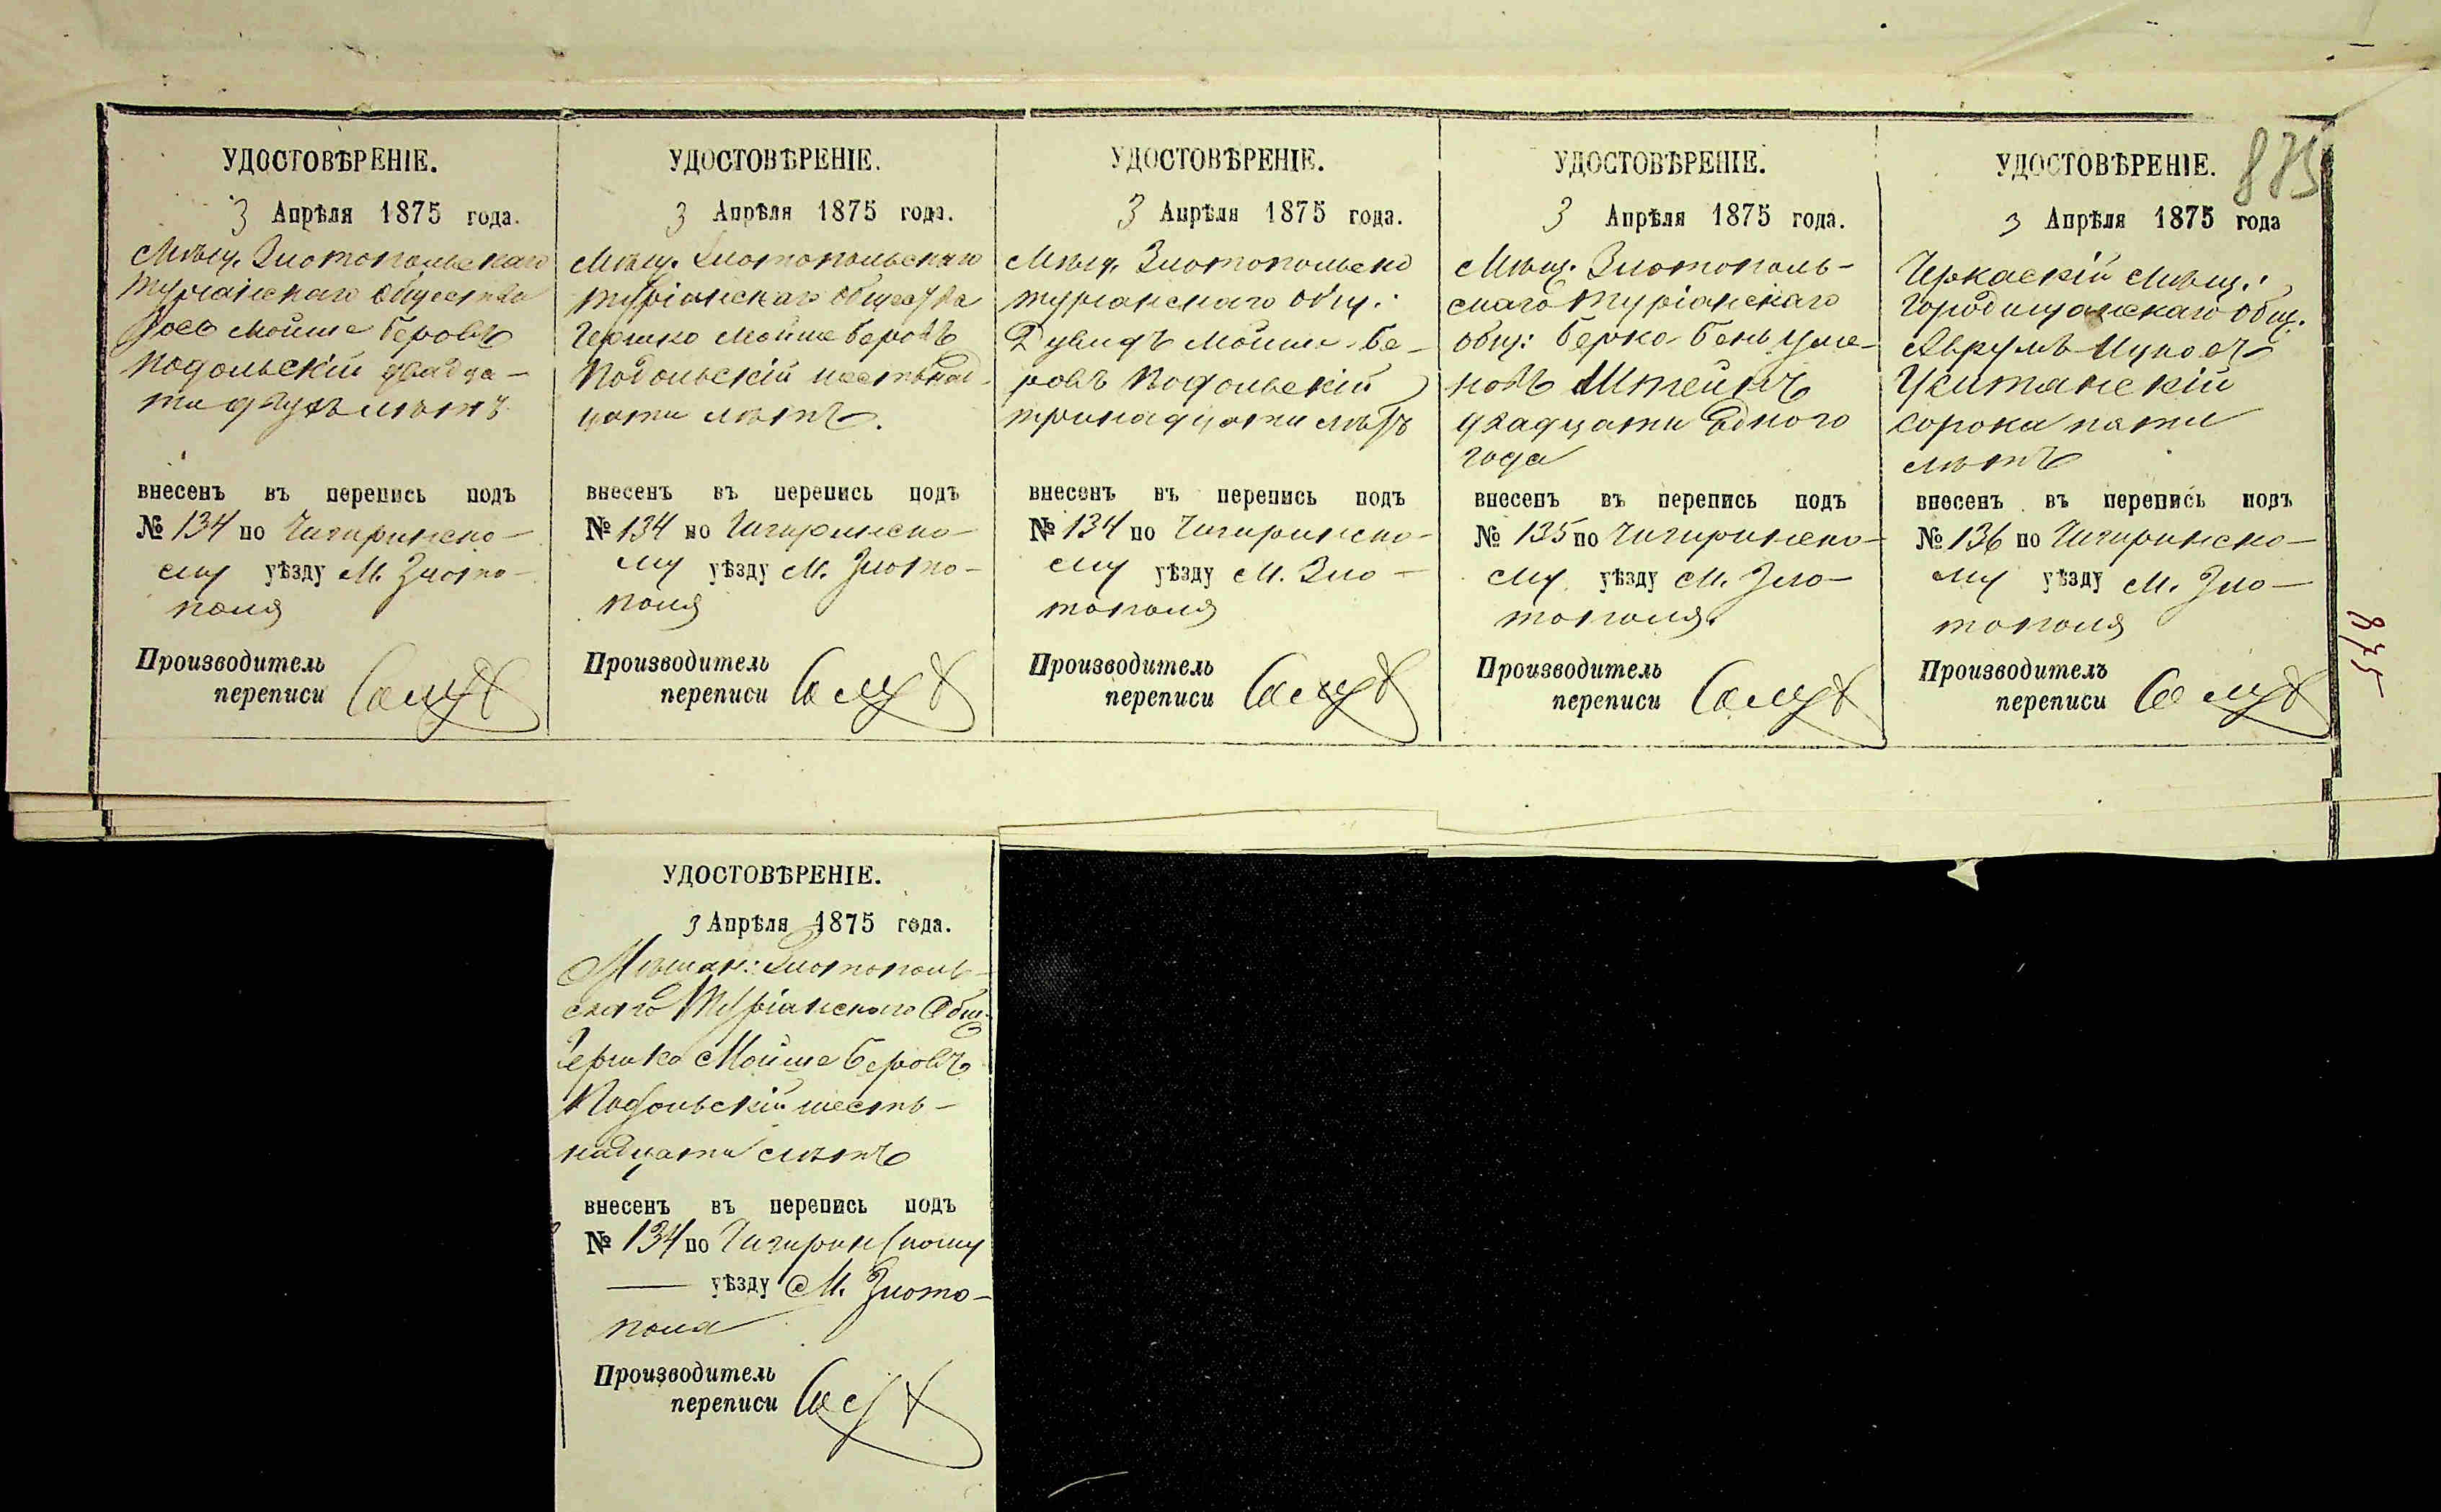 875
УДОСТОВѢРЕНІЕ.
3 Апрѣля 1875 года.
Мѣщ. Златопольскаго
Туріянскаго общества
Іось Мойше Беровъ
Подольскій двадца-
ти двухъ лѣтъ
внесенъ въ перепись подъ
№ 134 по Чигиринско-
му уѣзду М. Злато-
поля
Производитель
переписи
УДОСТОВѢРЕНІЕ.
3 Апрѣля 1875 года.
Мѣщ. Златопольскаго
Туріянскаго общества
Гершко Мойше Беровъ
Подольскій шестьнад-
цати лѣтъ.
внесенъ въ перепись подъ
№ 134 по Чигиринско-
му уѣзду М. Злато-
поля
Производитель
переписи
УДОСТОВѢРЕНІЕ.
3 Апрѣля 1875 года.
Мѣщ. Златопольско
туріянскаго общ.:
Дувидъ Мойше-Бе-
ровъ Подольскій
тринадцати лѣтъ
внесенъ въ перепись подъ
№ 134 по Чигиринско-
му уѣзду М. Зла-
тополя
Производитель
переписи
УДОСТОВѢРЕНІЕ.
3 Апрѣля 1875 года.
Мѣщ. Златополь-
скаго Туріянскаго
общ: Берко-Бенъ
Штейнъ
двадцати одного
года
внесенъ въ перепись подъ
№ 135 по Чигиринско-
му уѣзду М. Зла-
тополя.
Производитель
переписи
УДОСТОВѢРЕНІЕ.
3 Апрѣля 1875 года
Черкаскій Мѣщ.:
Городищанскаго общ.
Аврумъ Ицковъ
Уситянскій
сорока пяти
лѣтъ
внесенъ въ перепись подъ
№ 136 по Чигиринско-
му уѣзду М. Зла-
тополя
Производитель
переписи
875
УДОСТОВѢРЕНІЕ.
3 Апрѣля 1875 года.
Мѣщан: Златополь-
скаго Туріянскаго Общ.
Гершко Мойше Беровъ
Подольскій шесть-
надцати лѣтъ
внесенъ въ перепись подъ
№ 134 по Чигиринскому
уѣзду М. Злато-
поля
Производитель
переписи